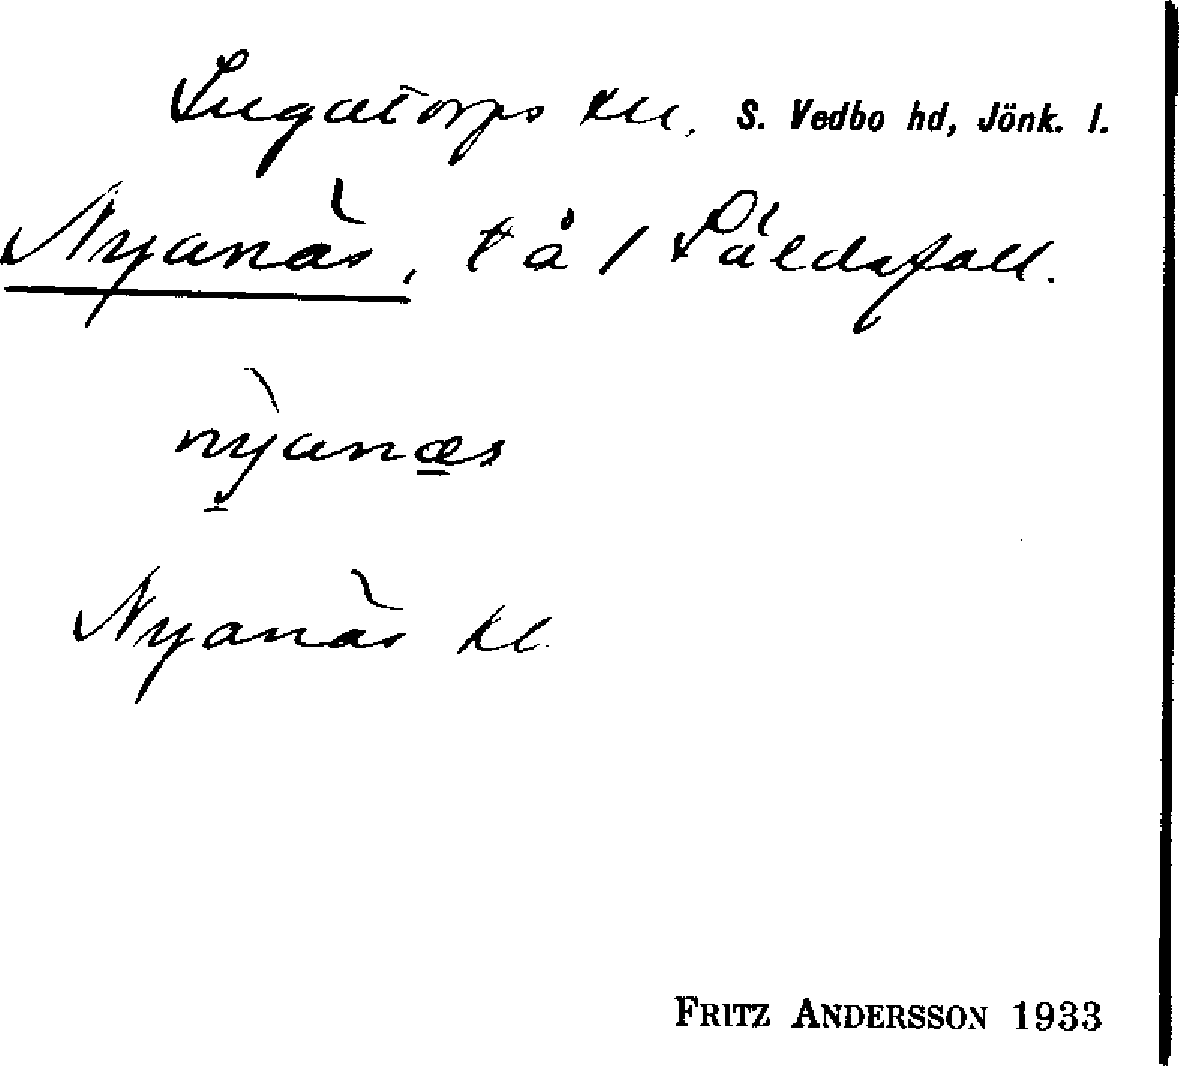 Ingatorps sn, S. Vedbo hd, Jönk. l.
Nyanäs, t å / Fäldsfall.
nỳanæs
Nyanäs kl.
FRITZ ANDERSSON 1933